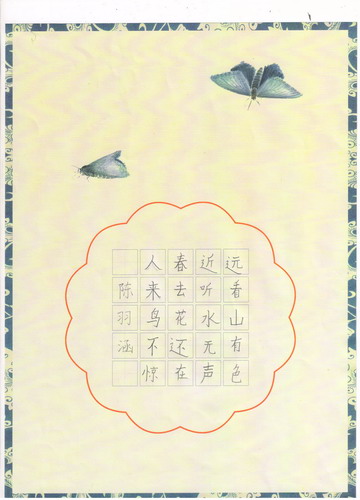 远看山有色
近听水无声
春去花还在
人来鸟不惊
陈羽涵